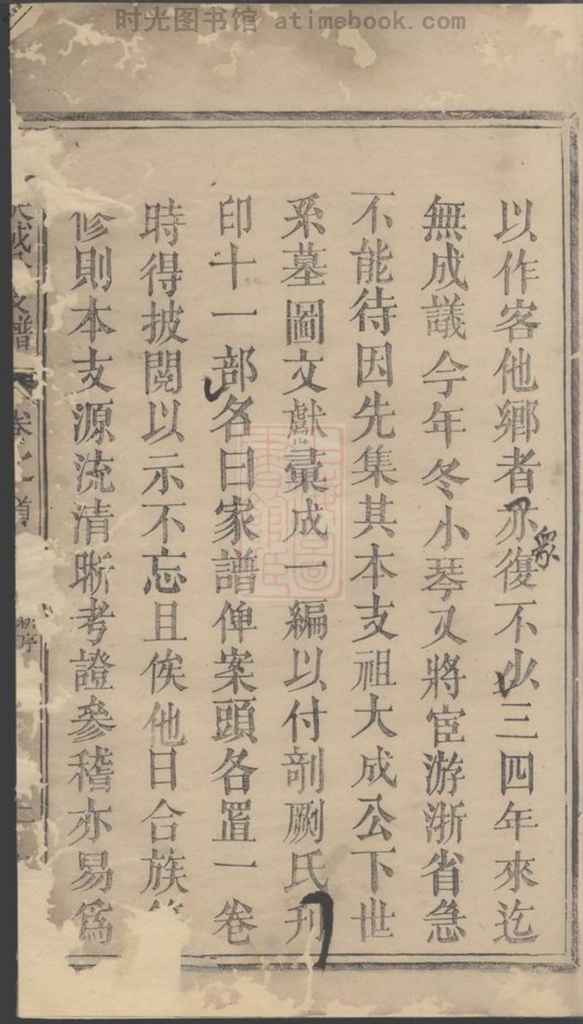 时光图书馆 atimebook.com
以作客他鄉者亦復不少三四年來迄
衆
無成議今年冬小琴又將宦游浙省急
不能待因先集其本支祖大成公下世
系墓圖文獻彙成一編以付剞劂氏刊
印十一部名曰家譜俾案頭各置一卷
時得披閱以示不忘且俟他日合族
修則本支源流清晰考證參稽亦易為
支譜 卷之首
序